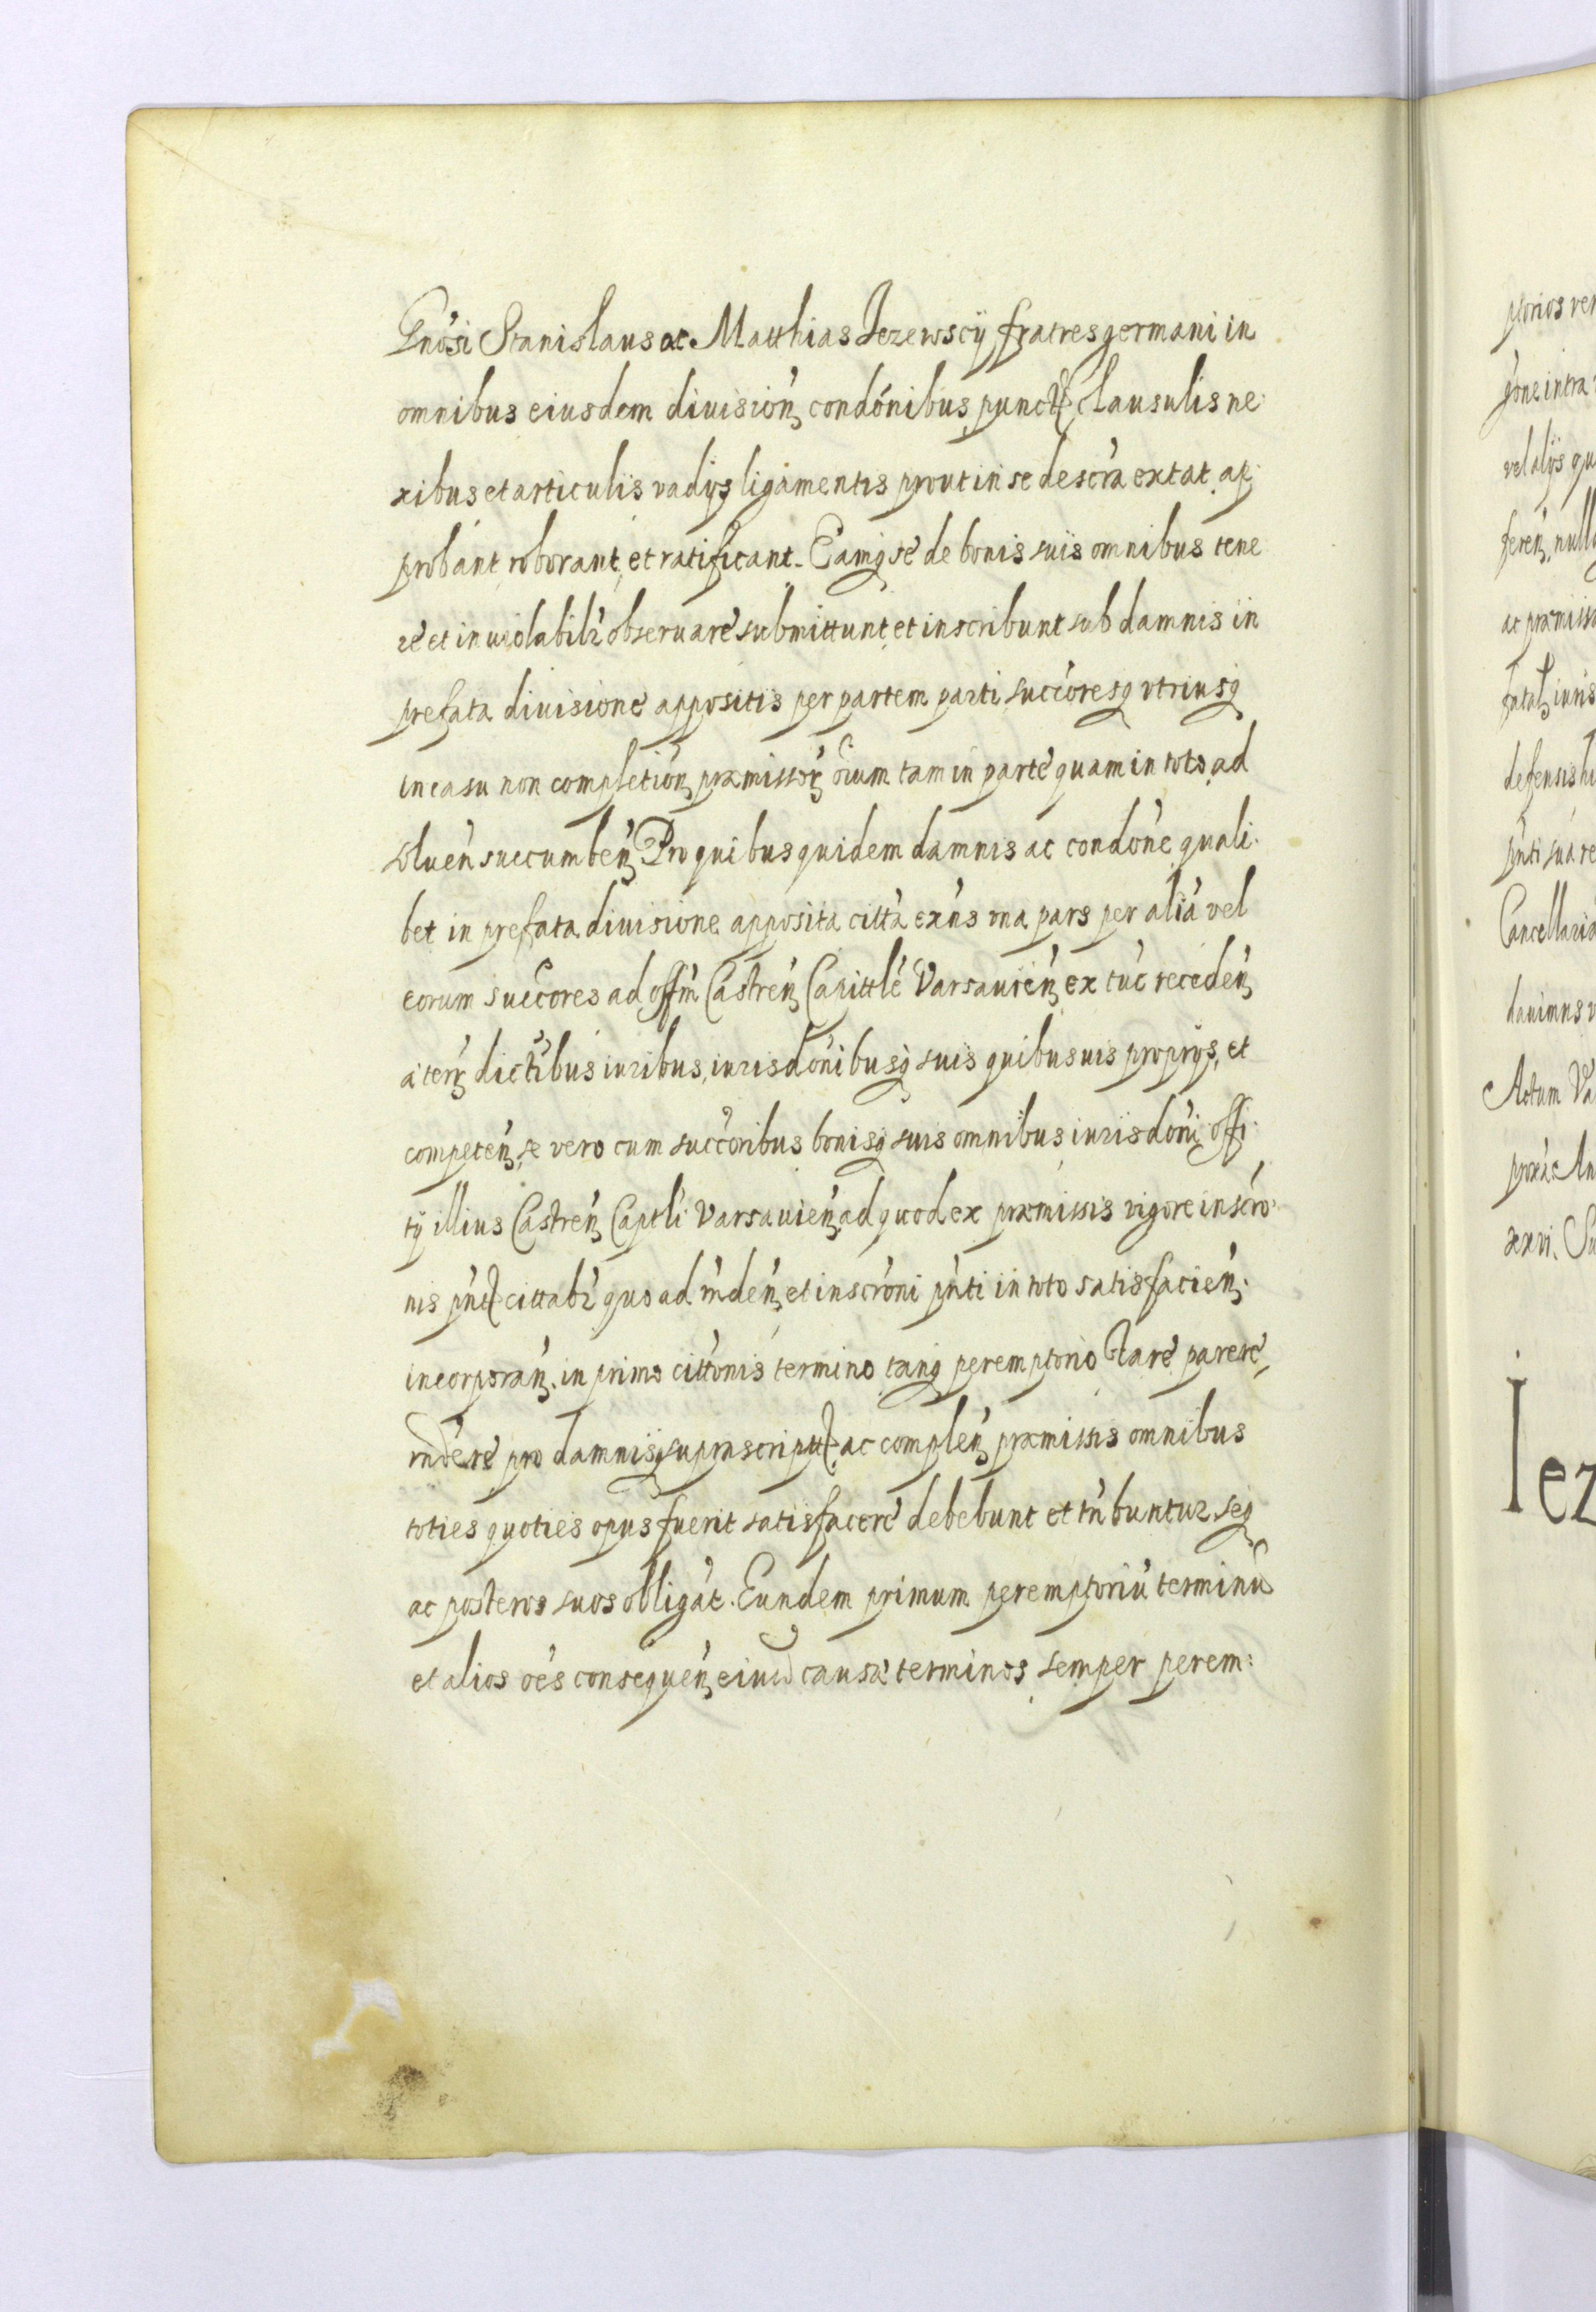 Gnosi Stanislaus ac Matthias Jezewscÿ fratres germani in
omnibus eiusdem diuision condonibus punct clausulis ne
xibus et articulis vadÿs ligamentis prout in se descra extat, ap
probant roborant, et ratificant. Eamq se de bonis suis omnibus tene
re et inuiolabilr obseruare submittunt, et inscribunt sub damnis in
prefata diuisione appositis per partem parti succoresq vtriusq
in casu non completion præmissor oium tam in parte quam in toto, ad
soluen succumben Pro quibus quidem damnis ac condone quali
bet in prefata diuisione apposita citta exns vna pars per alia vel
eorum succores ad offm Castren Capittle Varsauien ex tuc receden
a terr dictribus iuribus, iurisdonibusq suis quibusuis proprÿs, et
competen, se vero cum succoribus bonisq suis omnibus iurisdoni offi
tÿ illius Castren Captli Varsauien, ad quod ex præmissis vigore inscro
nis pnt cittabr quo ad rnden, et inscroni pnti in toto satisfacien.
incorporan. in primo cittonis termino tanq peremptorio stare parere,
rndere pro damnisq suprascript ac complen præmissis omnibus
toties quoties opus fuerit satisfacere debebunt et tnbuntur, seq
ac posteros suos obligat. Eundem primum peremptoriu terminu
et alios oes consequen eiusd causæ terminos semper perem:
ptorios
gone intra
vel alÿs qu
feren, null
ac præmiss
fatal iuris
defensis
pnti sua re
Cancellaria
dauimus
Actum Va
proxa
xxvi. Su
Iez